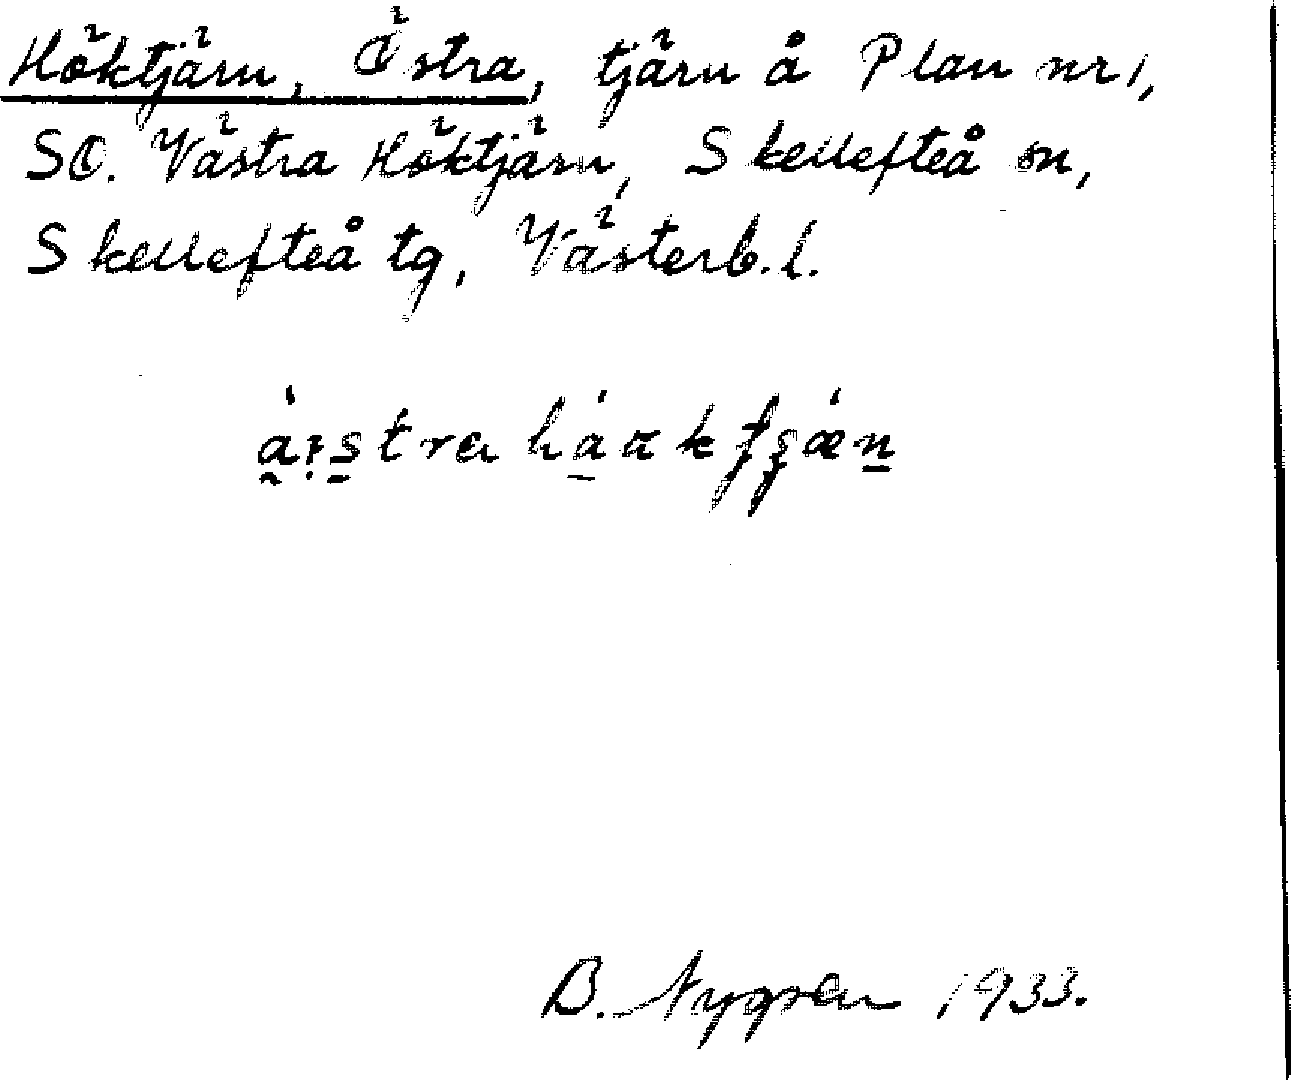 Höktjärn, Östra, tjärn å Plan nr 1,
SO. Västra Höktjärn, Skellefteå sn,
Skellefteå tg, Västerb. l.
B. Nygren 1933.